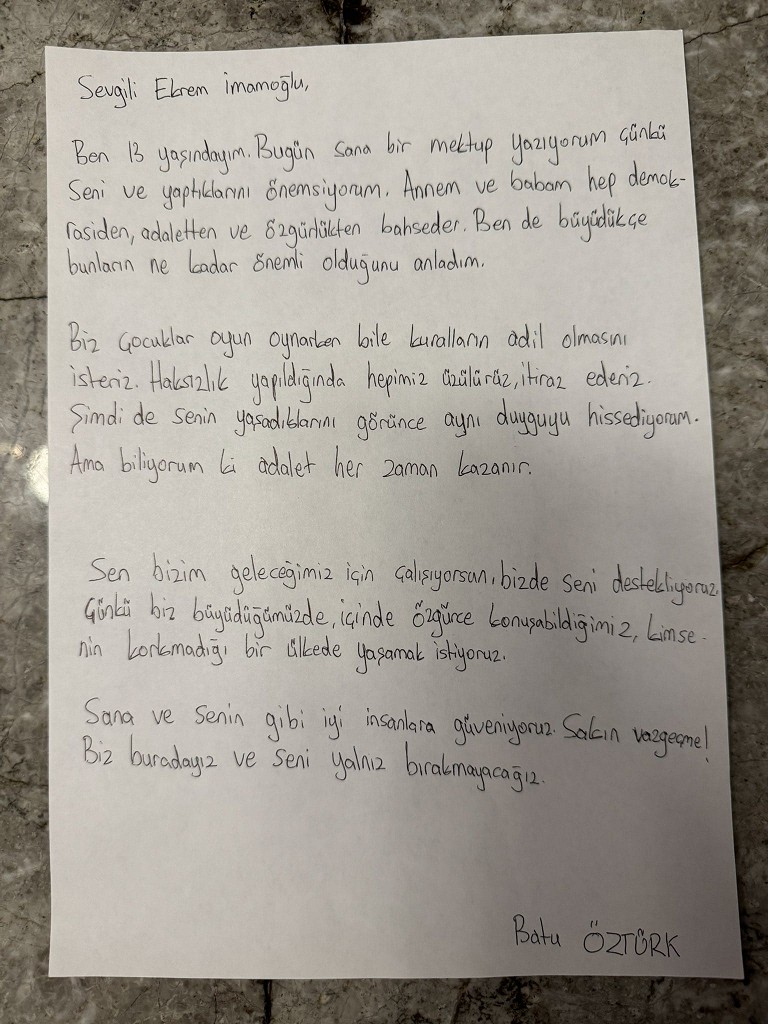 Sevgili Ekrem İmamoğlu,
Ben 13 yaşındayım. Bugün sana bir mektup yazıyorum çünkü
seni ve yaptıklarını önemsiyorum. Annem ve babam hep demok-
rasiden, adaletten ve özgürlükten bahseder. Ben de büyüdükçe
bunların ne kadar önemli olduğunu anladım.
Biz çocuklar oyun oynarken bile kuralların adil olmasını
isteriz. Haksızlık yapıldığında hepimiz üzülürüz, itiraz ederiz.
Şimdi de senin yaşadıklarını görünce aynı duyguyu hissediyorum.
Ama biliyorum ki adalet her zaman kazanır.
Sen bizim geleceğimiz için çalışıyorsun, bizde seni destekliyoruz.
Çünkü biz büyüdüğümüzde, içinde özgürce konuşabildiğimiz, kimse-
nin korkmadığı bir ülkede yaşamak istiyoruz.
Sana ve senin gibi iyi insanlara güveniyoruz. Sakın vazgeçme!
Biz buradayız ve seni yalnız bırakmayacağız.
Batu ÖZTÜRK